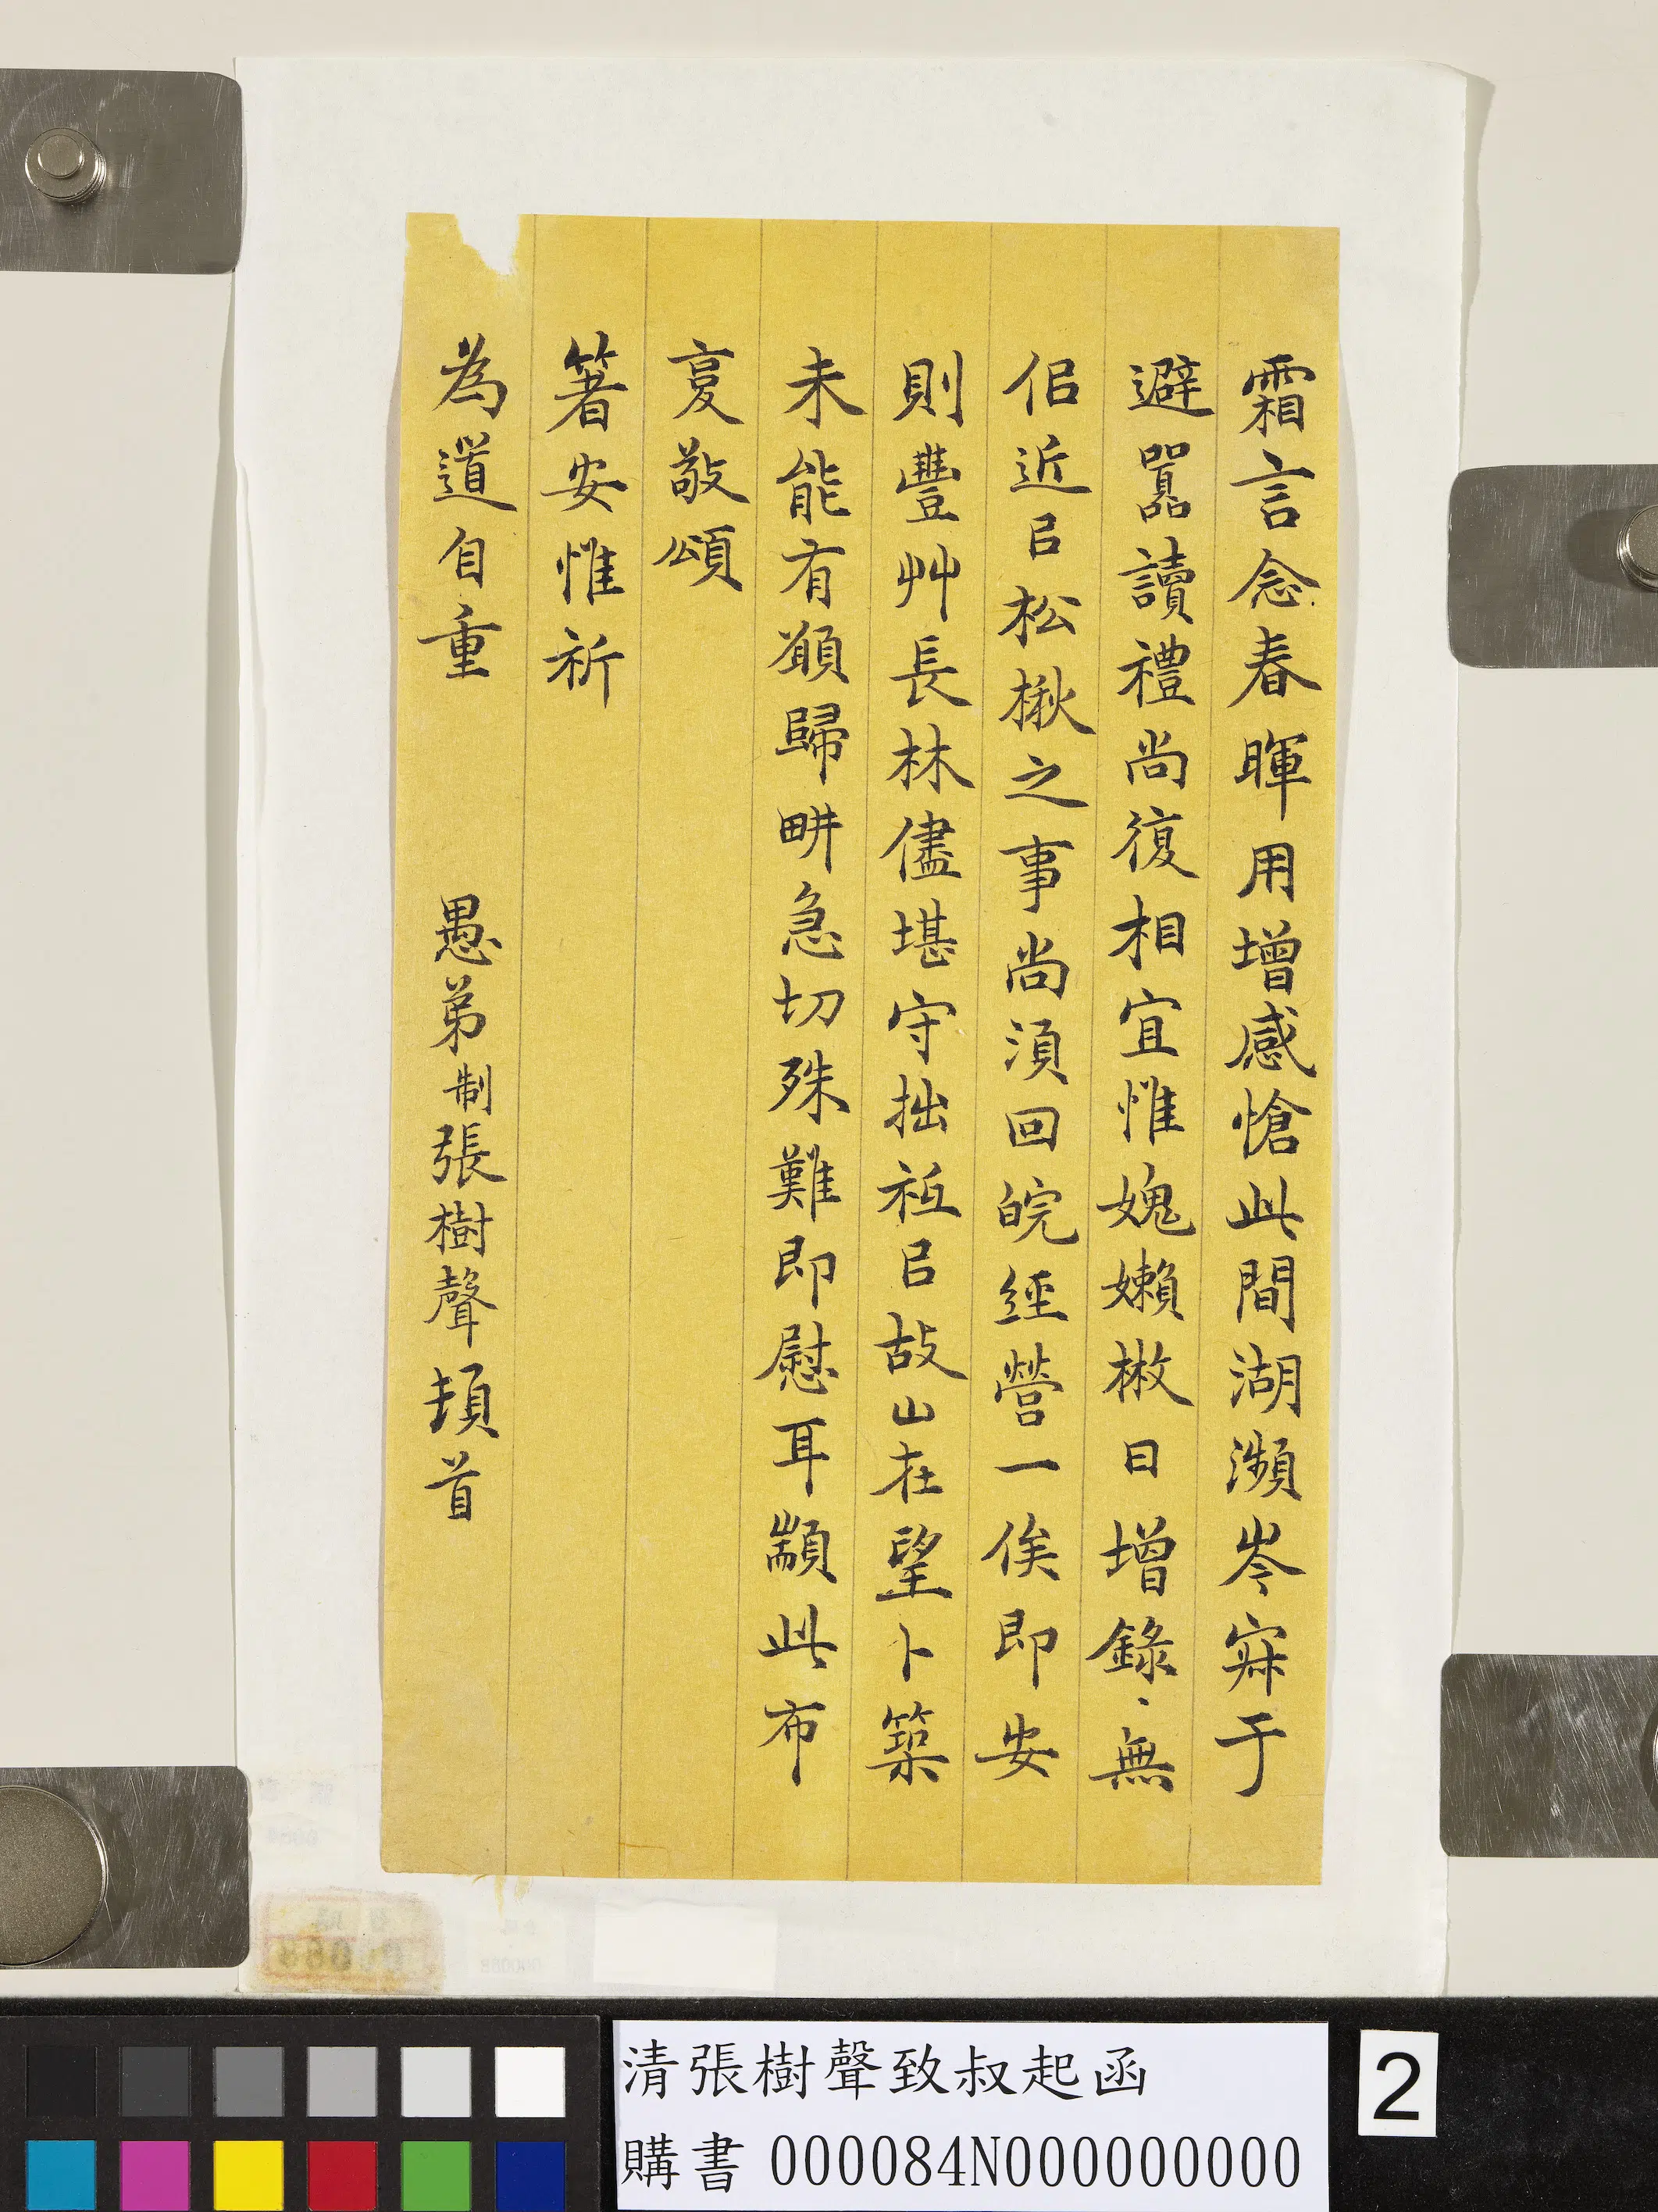 霜言念春暉用增感愴此間湖瀕岑寂于
避囂讀禮尚復相宜惟媿嬾楸日增錄、無
佀近㠯松楸之事尚須回皖經營一俟即安
則豐艸長林儘堪守拙祗㠯故山在望卜築
未能有願歸畊急切殊難即慰耳耑此布
敬頌
箸安惟祈
為道自重
愚弟制張樹聲頓首
清張樹聲致叔起函
購書 000084N000000000
2